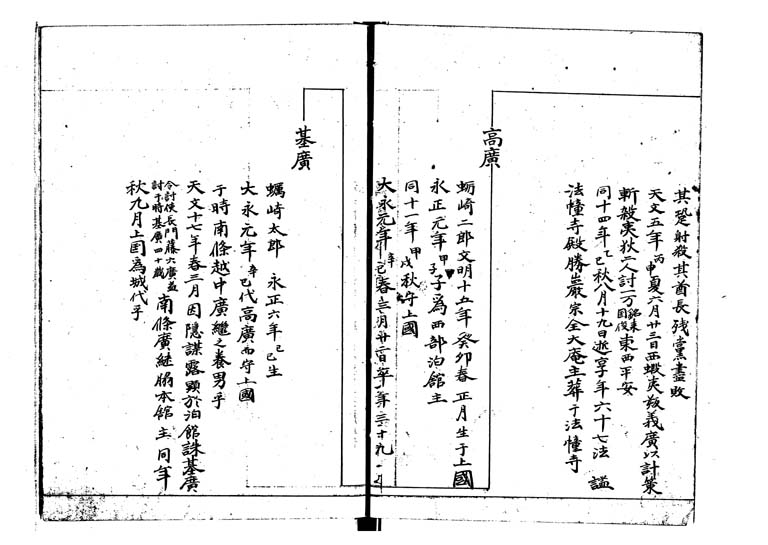 其蹤射殺其酋長残黨盡敗
天文五年丙申夏六月廿三日西蝦夷叛義廣以計策
斬殺夷狄二人討一方来因復東西平安
同十四年乙巳秋八月十九日逝享年六十七法諡
法幢寺殿勝巌宗全大庵主葬于法幢寺
高廣
蛎崎二郎文明十五年癸卯春正月生于上國
永正元年甲子子為西部泊舘主
同十一年甲戌秋守上國
大永元年辛巳春三月廿一日卒年三十九
基廣
蠣崎太郎 永正六年己巳生
大永元年辛巳代高廣而守上國
于時南條越中廣継之養男乎
天文十七年春三月因隠謀露顕於泊舘誅基廣
令討使長門藤六廣益
討于時基廣四十歳
南條廣継賜本舘主同年
秋九月上国為城代乎